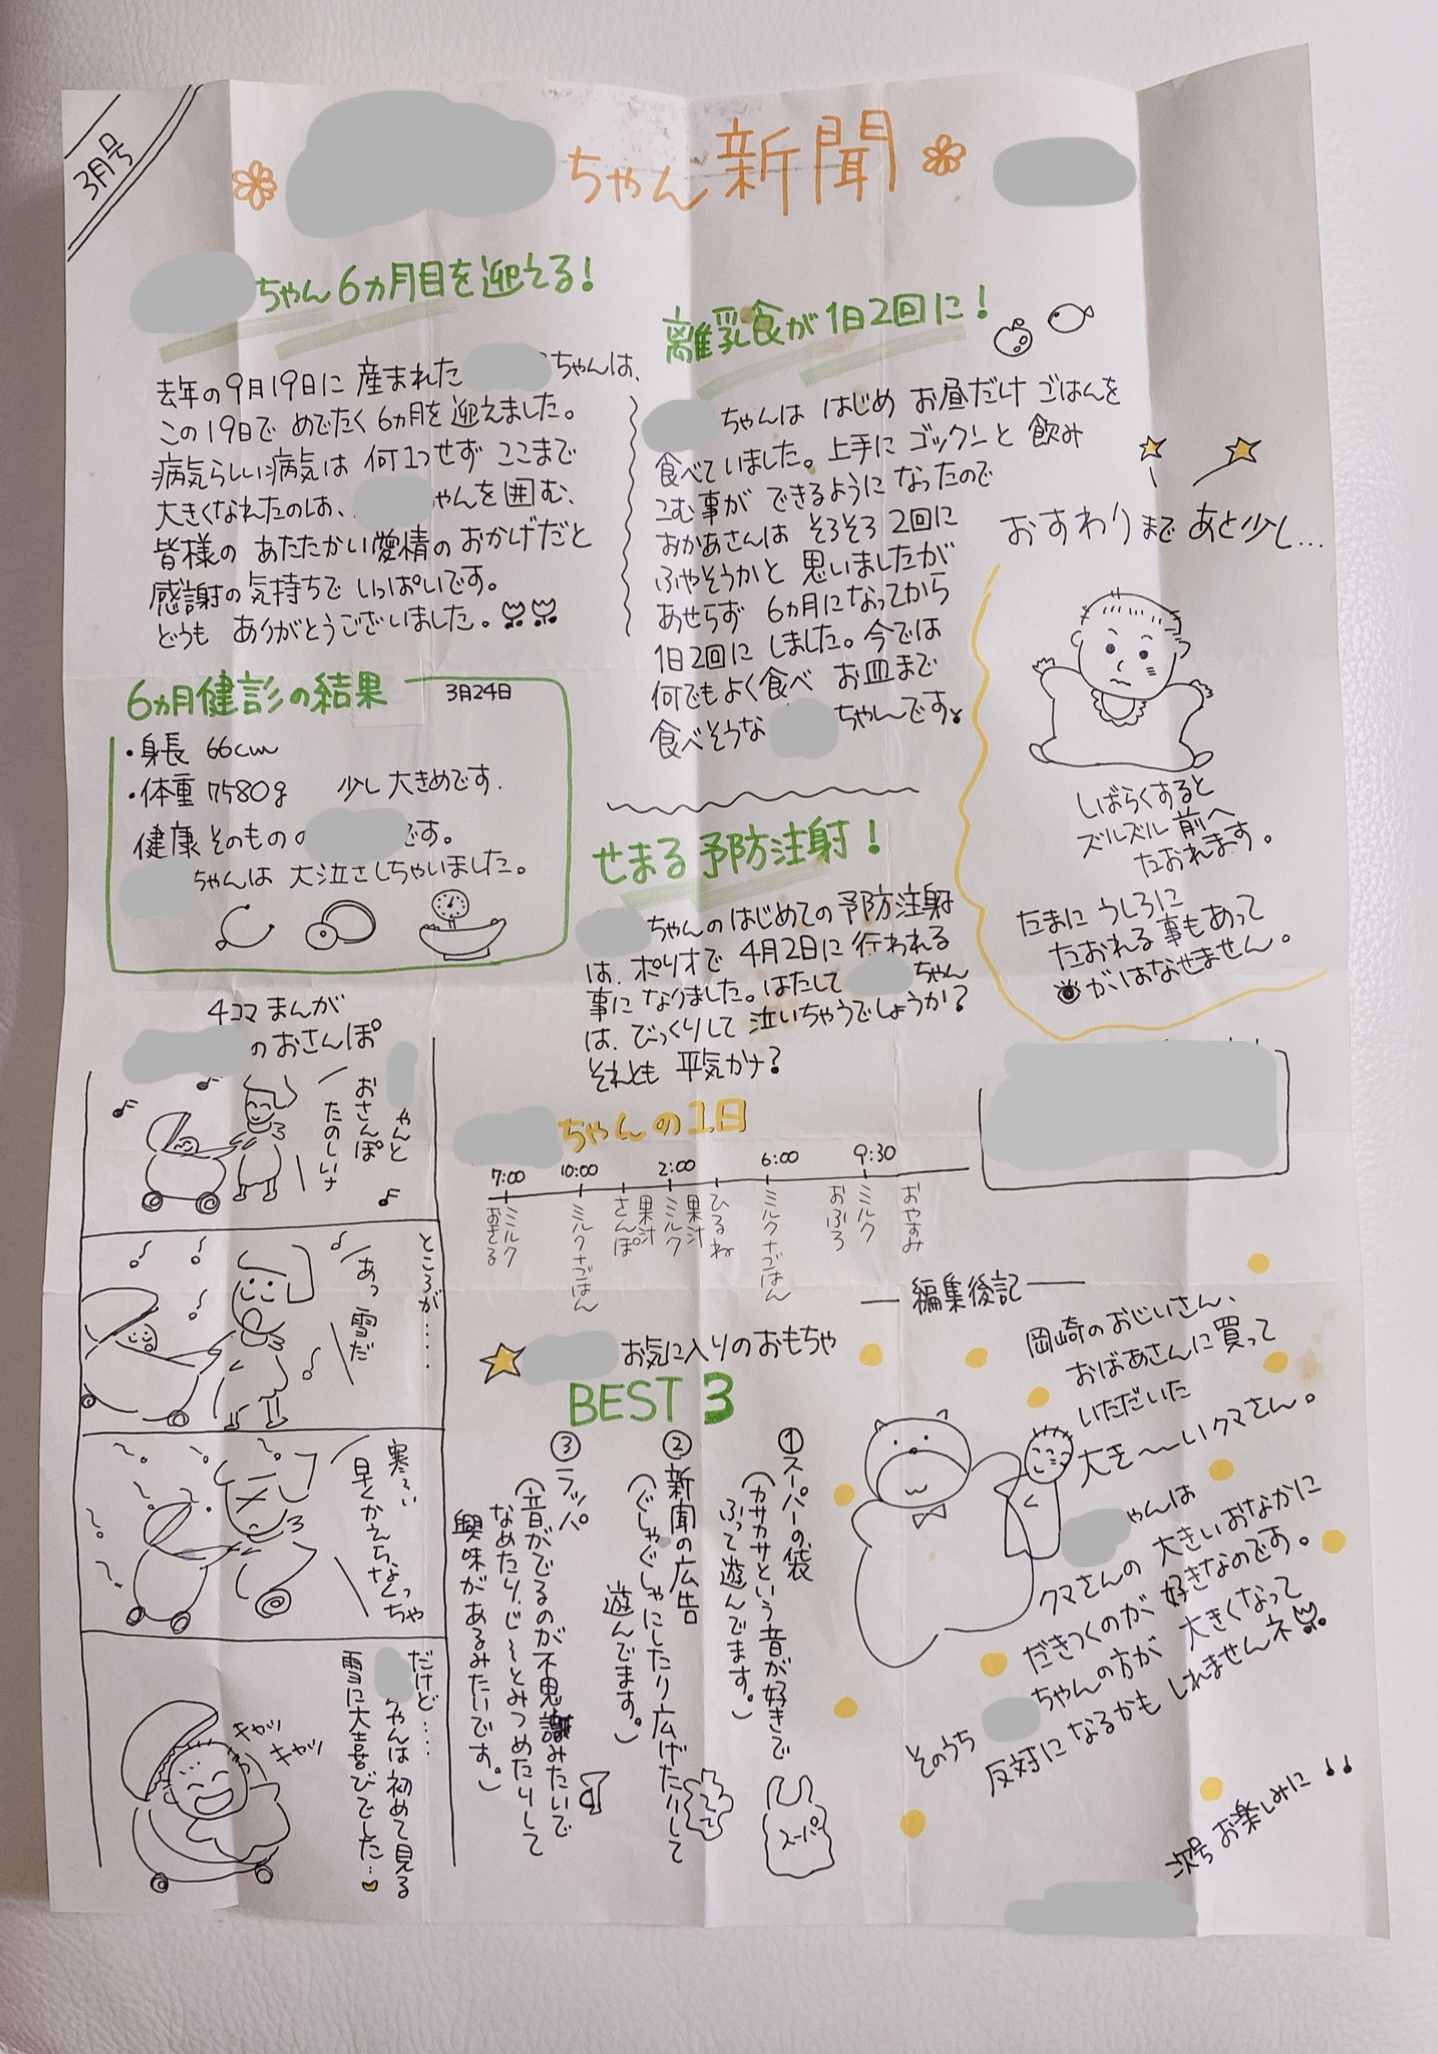 3月号
ちゃん新聞
ちゃん6ヵ月目を迎える!
去年の9月19日に産まれた ちゃんは、
この19日でめでたく6ヵ月を迎えました。
病気らしい病気は何1つせずここまで
大きくなれたのは、 ゃんを囲む、
皆様のあたたかい愛情のおかげだと
感謝の気持ちでいっぱいです。
どうもありがとうございました。
離乳食が1日2回に!
ちゃんははじめお昼だけごはんを
食べていました。上手にゴックンと飲み
こむ事ができるようになったので
おかあさんはそろそろ2回に
ふやそうかと思いましたが
あせらず6ヵ月になってから
1日2回にしました。今では
何でもよく食べお皿まで
食べそうな ちゃんです。
おすわりまであと少し…
しばらくすると
ズルズル前へ
たおれます。
たまにうしろに
たおれる事もあって
がはなせません。
6ヵ月健診の結果 3月24日
・身長 66cm
・体重 7580g 少し大きめです.
健康そのものの です。
ちゃんは大泣きしちゃいました。
せまる予防注射!
ちゃんのはじめての予防注射
は、ポリオで4月2日に行われる
事になりました。はたして ちゃん
は、びっくりして泣いちゃうでしょうか?
それとも平気かナ?
4コマまんが
のおさんぽ
ゃんと
おさんぽ
たのしいナ
ところが……
あっ雪だ
寒ぅい
早くかえらなくっちゃ
だけど……
ゃんは初めて見る
雪に大喜びでした…
キャッ
キャッ
ちゃんの1日
7:00 10:00 2:00 6:00 9:30
ミルク
おきる
ミルクナごはん
さんぽ
果汁
ミルク
果汁
ひるね
ミルクナごはん
おふろ
ミルク
おやすみ
お気に入りのおもちゃ
BEST 3
①スーパーの袋
(カサカサという音が好きで
ふって遊んでます。)
スーパー
②新聞の広告
(ぐしゃぐしゃにしたり広げたりして
遊んでます。)
③ラッパ
(音がでるのが不思議みたいで
なめたり、じ〜とみつめたりして
興味があるみたいです。)
―編集後記―
岡崎のおじいさん、
おばあさんに買って
いただいた
大き〜〜いクマさん。
ゃんは
クマさんの大きいおなかに
だきつくのが好きなのです。
そのうち ちゃんの方が大きくなって
反対になるかもしれませんネ
次号お楽しみに